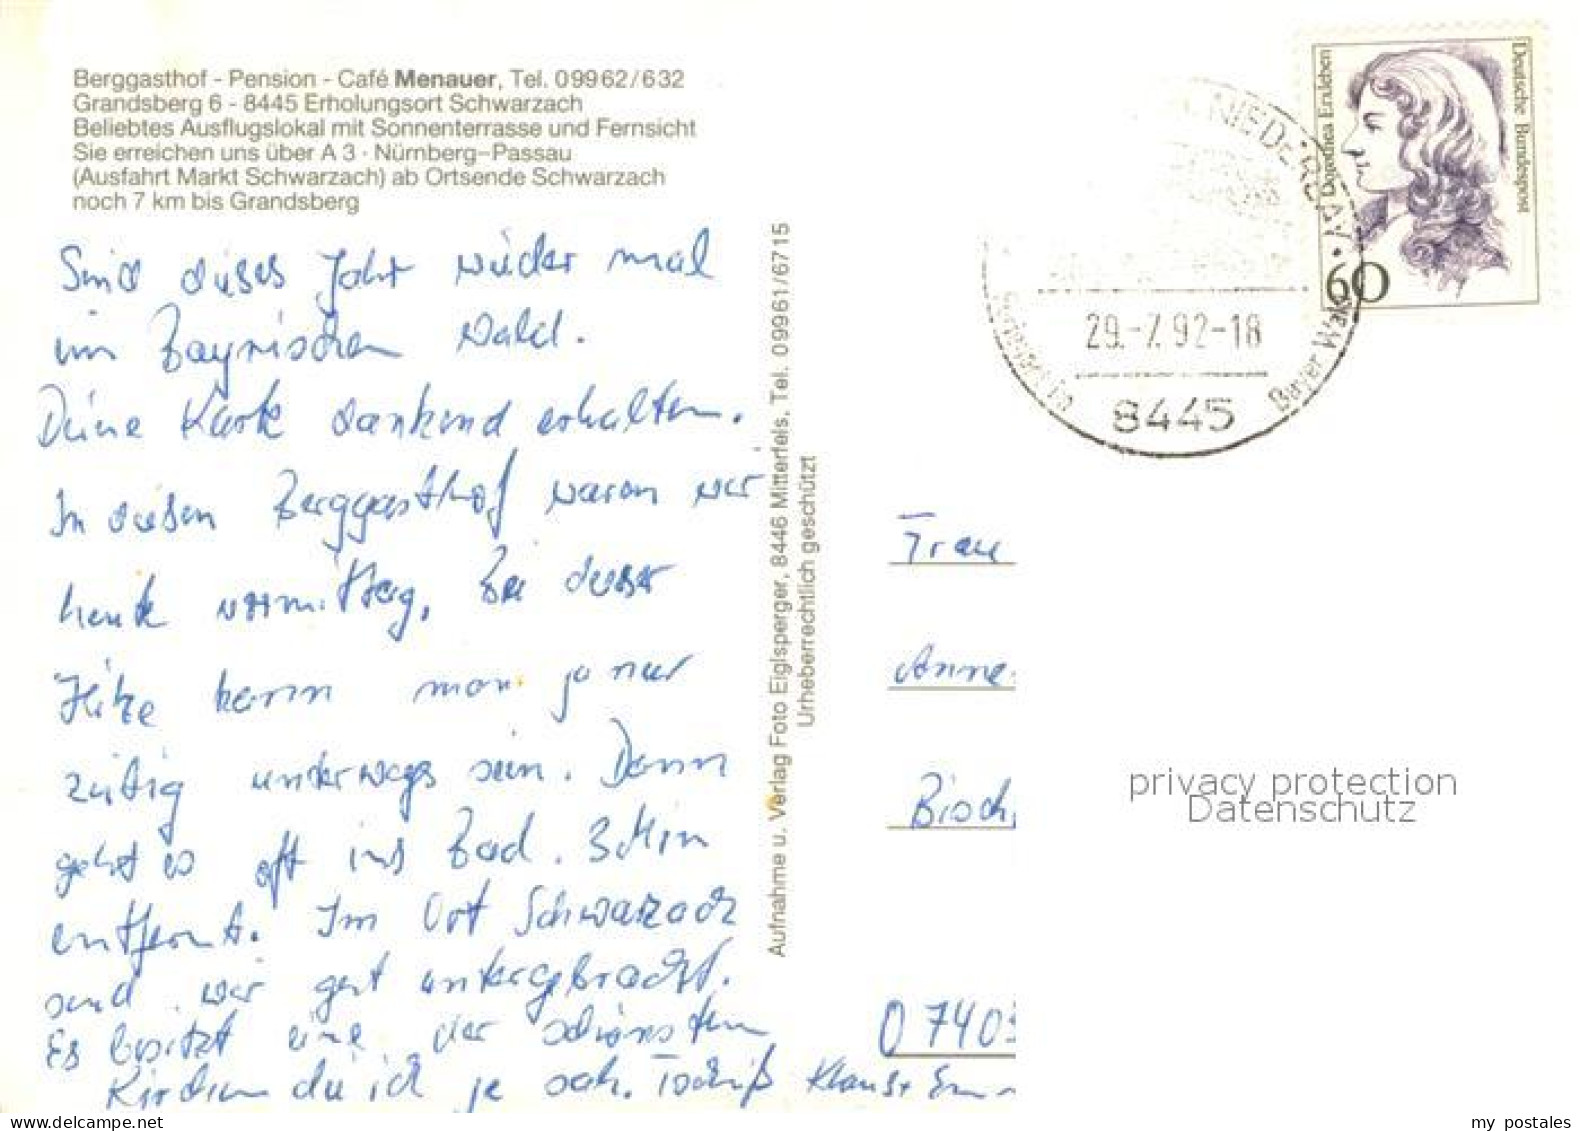 Berggasthof - Pension - Café Menauer, Tel. 09962/632
Grandsberg 6 - 8445 Erholungsort Schwarzach
Beliebtes Ausflugslokal mit Sonnenterrasse und Fernsicht
Sie erreichen uns über A 3 · Nürnberg-Passau
(Ausfahrt Markt Schwarzach) ab Ortsende Schwarzach
noch 7 km bis Grandsberg
Sind dieses Jahr wieder mal
im Bayrischen Wald.
Deine Karte dankend erhalten.
In diesen Berggasthof waren wir
heute vormittag, Bei dieser
Hitze kann man ja nur
zeitig unterwegs sein. Dann
geht es oft ins Bad. 3 Min
entfernt. Im Ort Schwarzach
sind wir gut untergebracht.
Es besitzt eine der schönsten
Kirchen die ich je sah. Tschüß Klaus +
Aufnahme u. Verlag Foto Eiglsperger, 8446 Mitterfels, Tel. 09961/6715
Urheberrechtlich geschützt
Deutsche Bundespost
Dorothea Erxleben
60
NIEDERBAY.
29.-7.92-18
8445
Bayer Wald
Frau
Anne
Bisch
O 740
privacy protection
Datenschutz
my postales